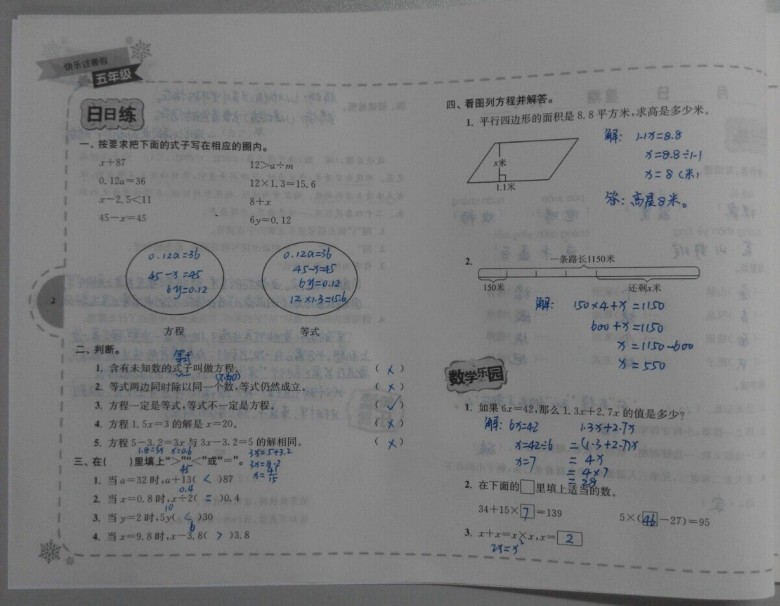 快乐过暑假
五年级
日日练
一、按要求把下面的式子写在相应的圈内。
x+87 12>a÷m
0.12a=36 12×1.3=15.6
x-2.5<11 8+x
45-x=45 6y=0.12
0.12a=36
45-x=45
6y=0.12
0.12a=36
45-x=45
6y=0.12
12×1.3=15.6
方程 等式
二、判断。
等式
1. 含有未知数的式子叫做方程。 (×)
(不为0)
2. 等式两边同时除以同一个数,等式仍然成立。 (×)
3. 方程一定是等式,等式不一定是方程。 (√)
4. 方程 1.5x=3 的解是 x=20。 (×)
5. 方程 5-3.2=3x 与 3x-3.2=5 的解相同。 (×)
1.8=3x x=0.6 3x=5+3.2
3x=8.2
三、在( )里填上“>”“<”或“=”。
45
1. 当 a=32 时,a+13(<)87
0.4
2. 当 x=0.8 时,x÷2(=)0.4
10
3. 当 y=2 时,5y(<)30
6
4. 当 x=9.8 时,x-3.8(>)3.8
2
四、看图列方程并解答。
1. 平行四边形的面积是 8.8 平方米,求高是多少米。
x米
1.1米
解: 1.1x=8.8
x=8.8÷1.1
x=8(米)
答:高是8米。
2.
一条路长1150米
150米 还剩x米
解: 150×4+x=1150
600+x=1150
x=1150-600
x=550
数学乐园
1. 如果 6x=42,那么 1.3x+2.7x 的值是多少?
解: 6x=42 1.3x+2.7x
x=42÷6 =(1.3+2.7)x
x=7 =4x
=4×7
=28
2. 在下面的□里填上适当的数。
34+15×7=139 5×(46-27)=95
3. x+x=x×x,x=2
2x=x²